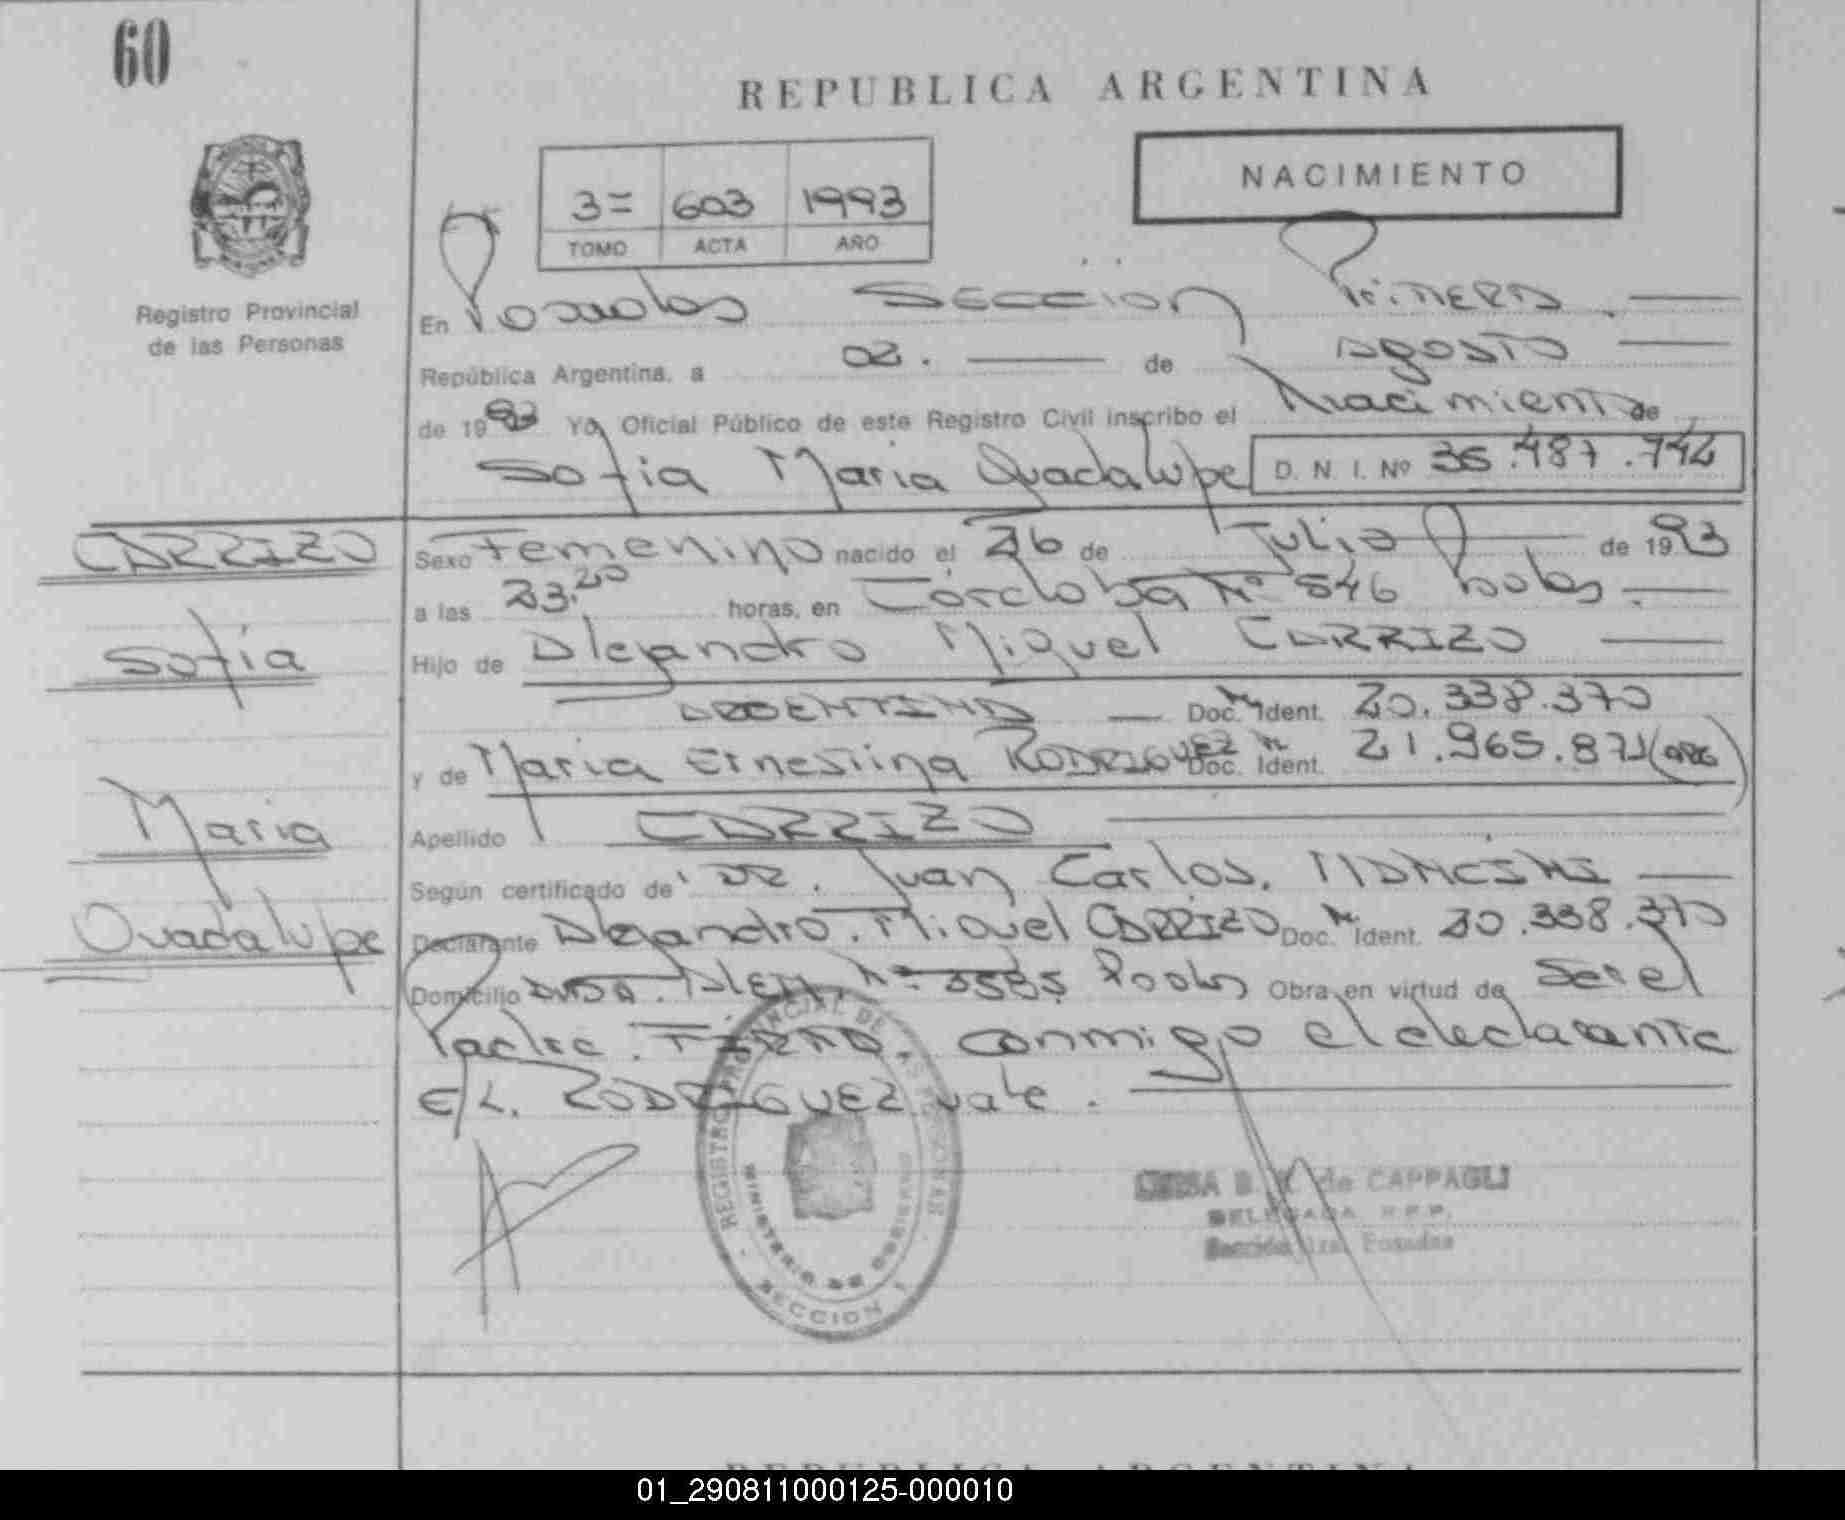 60
REPUBLICA ARGENTINA
NACIMIENTO
3= 603 1993
TOMO ACTA AÑO
Registro Provincial
de las Personas
En Posadas Sección Primera.
República Argentina, a 02. de Agosto
de 1993 Yo, Oficial Público de este Registro Civil inscribo el Nacimiento de
Sofia Maria Guadalupe D. N. I. Nº 36.487.742
CARRIZO
Sofia
Maria
Guadalupe
Sexo Femenino nacido el 26 de Julio de 1993
a las 23.20 horas, en Córdoba Nº 846 Pdas.
Hijo de Alejandro Miguel CARRIZO
ARGENTINO Doc. Ident. 20.338.370
y de Maria Ernestina RODRIGUEZ Doc. Ident. 21.965.871 (ARG)
Apellido CARRIZO
Según certificado de DR. Juan Carlos. MANCINI
Declarante Alejandro. Miguel CARRIZO Doc. Ident. 20.338.370
Domicilio AVDA. ALEM. Nº Obra en virtud de Ser el
Padre. FIRMA. conmigo el declarante
E/L. RODRIGUEZ vale.
REGISTRO PROVINCIAL DE LAS PERSONAS
MINISTERIO DE GOBIERNO
SECCION 1
de CAPPAGLI
DELEGADA R.P.P.
Sección 1ra. Posadas
REPUBLICA ARGENTINA
01_290811000125-000010